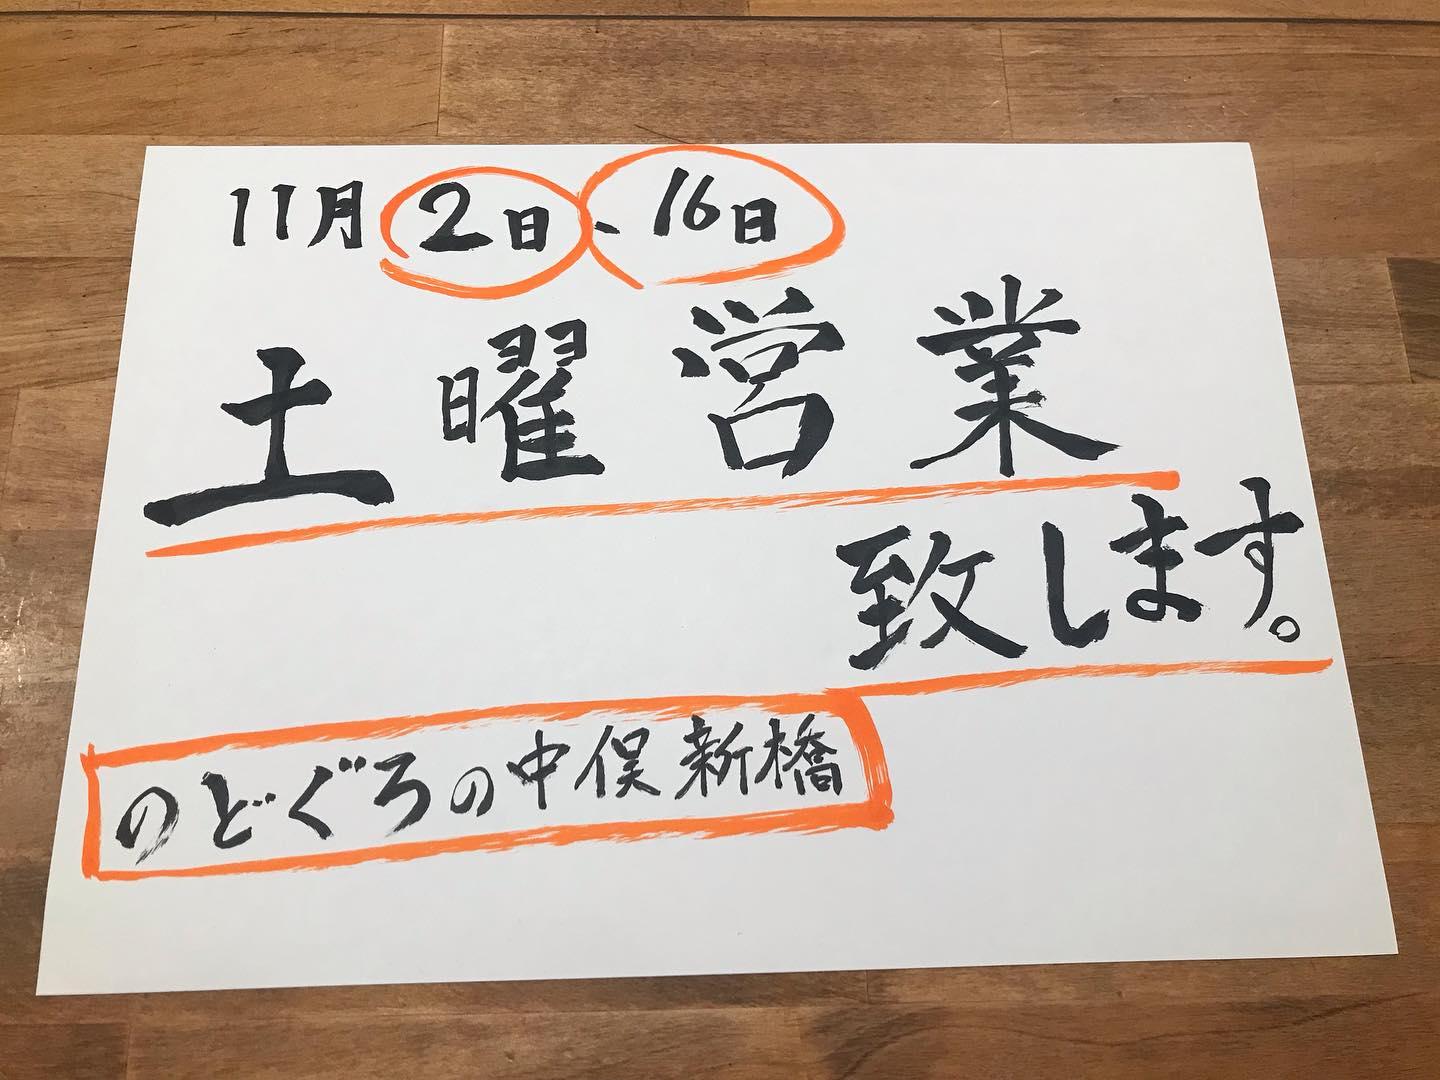 11月2日、16日
土曜営業
致します。
のどぐろの中俣新橋